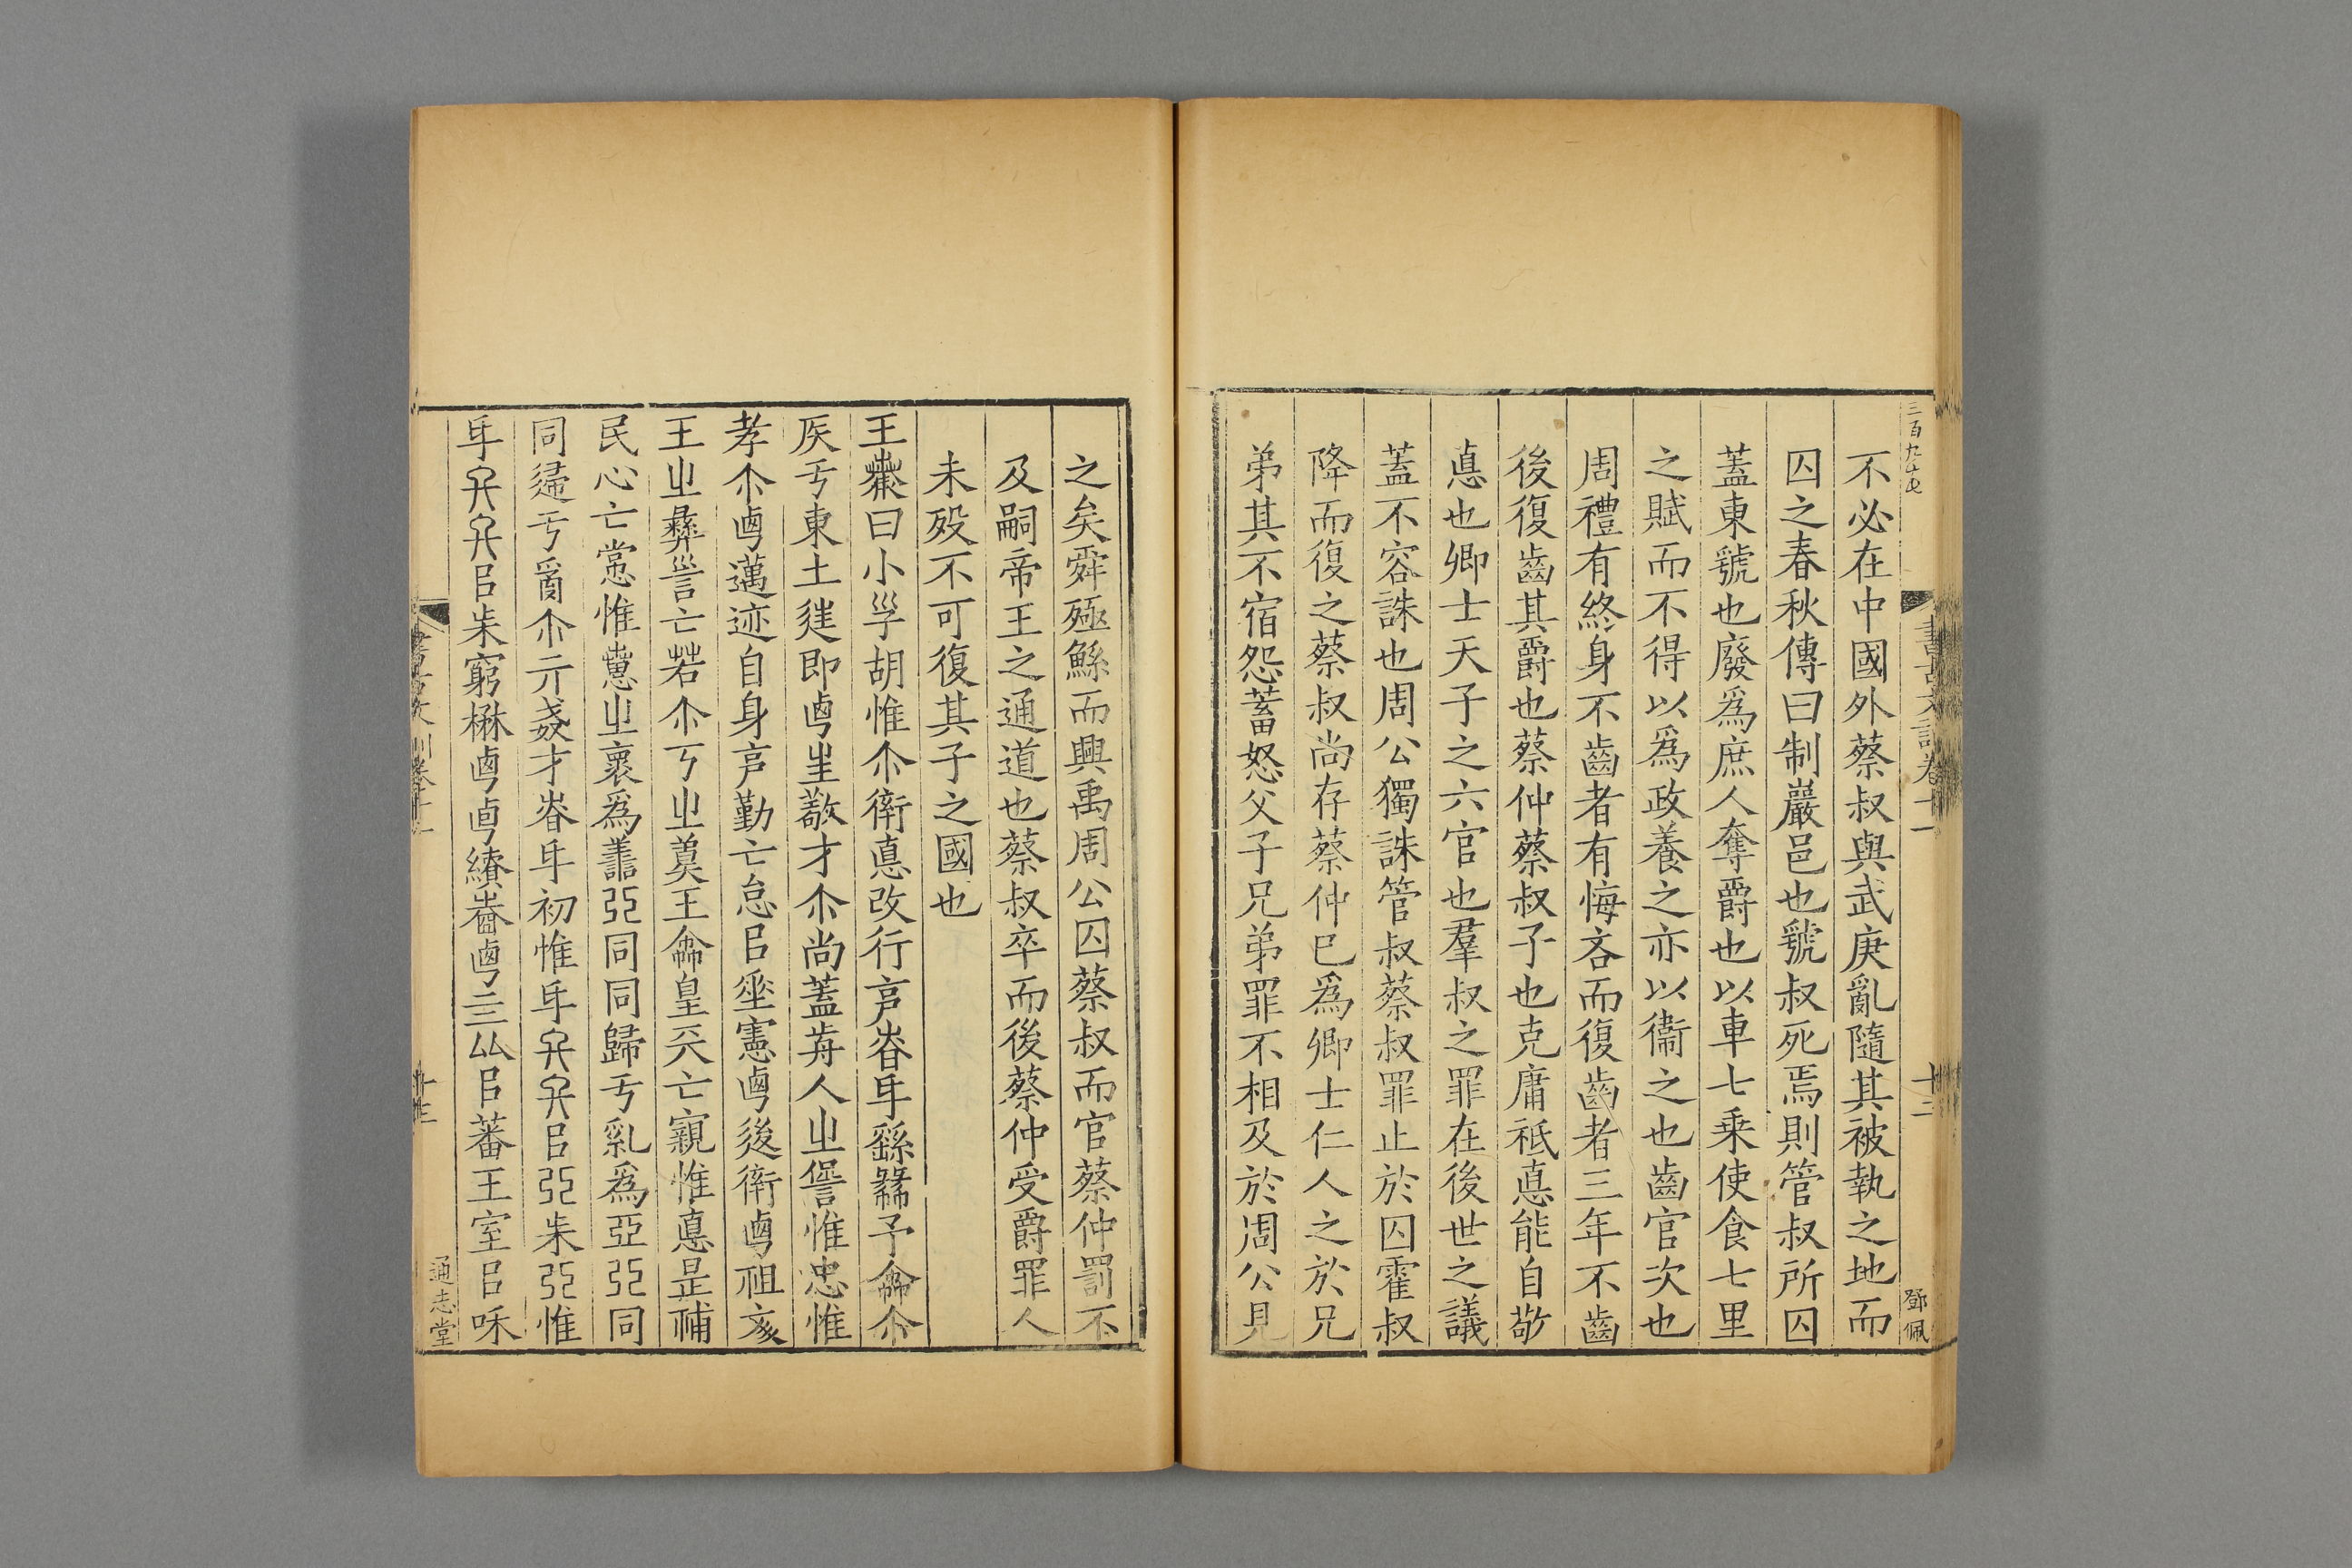 三百九十七
鄧佩
不必在中國外蔡叔與武庚亂隨其被執之地而
囚之春秋傳曰制巖邑也虢叔死焉則管叔所囚
蓋東虢也廢爲庶人奪爵也以車七乗使食七里
之賦而不得以爲政養之亦以衞之也齒官次也
周禮有終身不齒者有悔吝而復齒者三年不齒
後復齒其爵也蔡仲蔡叔子也克庸祗悳能自敬
悳也卿士天子之六官也羣叔之罪在後世之議
蓋不容誅也周公獨誅管叔蔡叔罪止於囚霍叔
降而復之蔡叔尚存蔡仲巳爲卿士仁人之於兄
弟其不宿怨蓄怒父子兄弟罪不相及於周公見
之矣舜殛鯀而興禹周公囚蔡叔而官蔡仲罰不
及嗣帝王之通道也蔡叔卒而後蔡仲受爵罪人
未歿不可復其子之國也
王曰小孚胡惟尒衛悳改行亯昚毌繇予命尒
矦亐東土逞即卤坐敬才尒尚蓋歬人㞢諐惟忠惟
孝尒卤邁迹自身亯勤亡怠㠯垂憲卤後衛卤祖亥
王㞢彝訔亡若尒丂㞢奠王命皇兲亡親惟悳是補
民心亡惟㞢褱爲譱亞同同歸亐乿爲亞亞同
同歸亐尒亓才昚毌初惟毌㠯亞惟
毌㠯窮楙卤卣績卤亖㕕㠯蕃王室㠯咊
通志堂